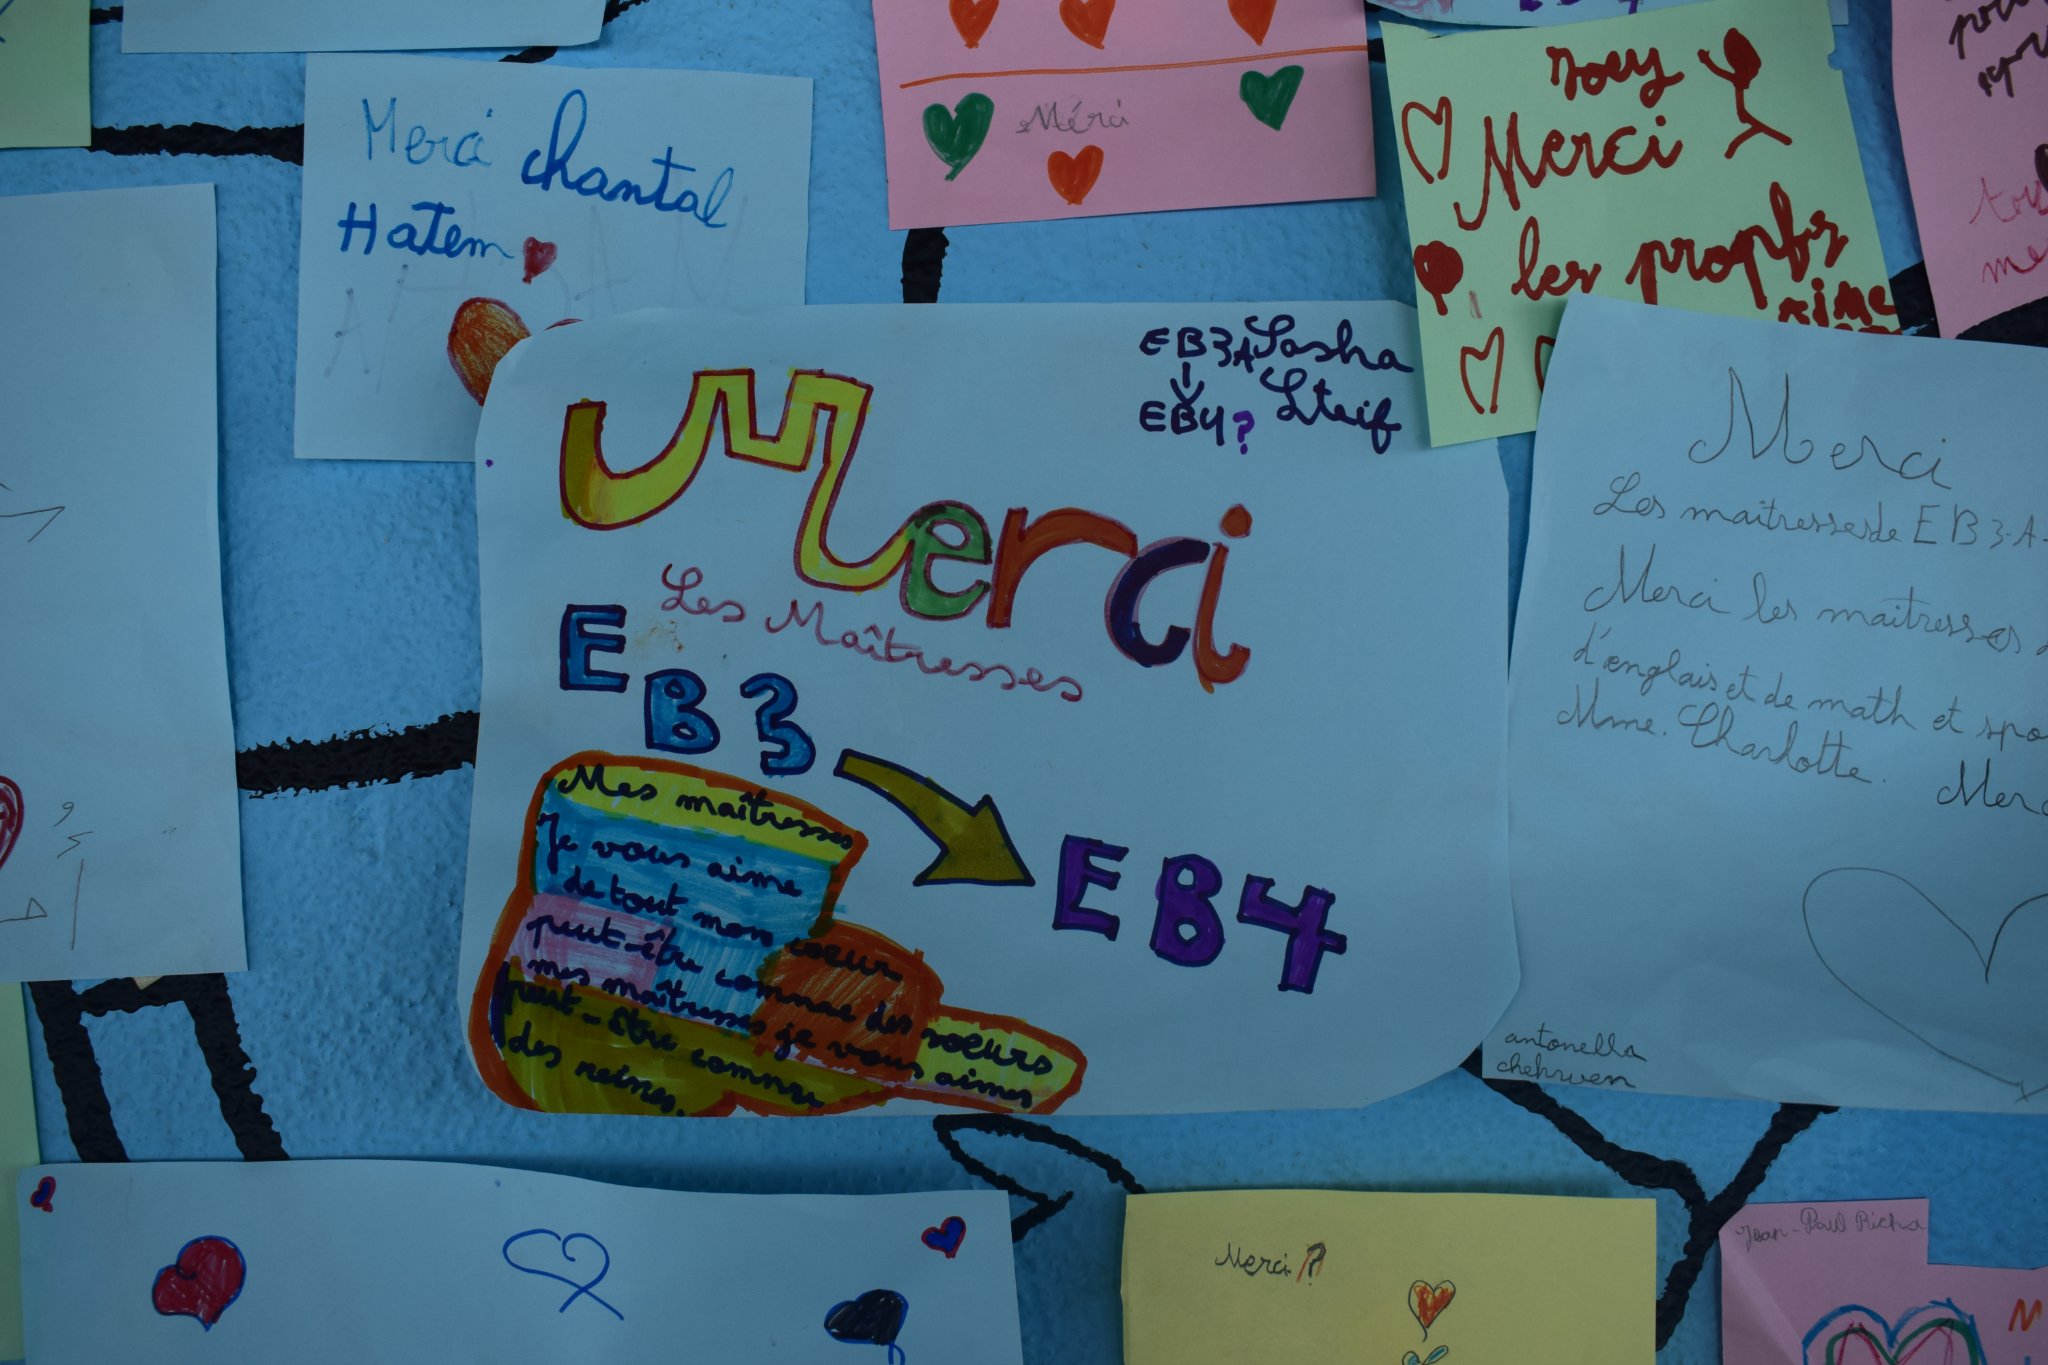 Merci chantal
Hatem
Mérci
Joey
Merci
les propfs
aime
EB3A Sasha
EB4? Lteif
Merci
Les Maîtresses
EB3
EB4
Mes maîtresses
Je vous aime
de tout mon coeur
peut-être comme des voeurs
mes maîtresses je vous aimes
peut-être comme
des reines.
Merci
Les maîtresses de EB3-A
Merci les maitresses
d'englais et de math et spo
Mme. Charlotte. Merc
antonella
chehwen
Merci?
Jean-Paul Richa